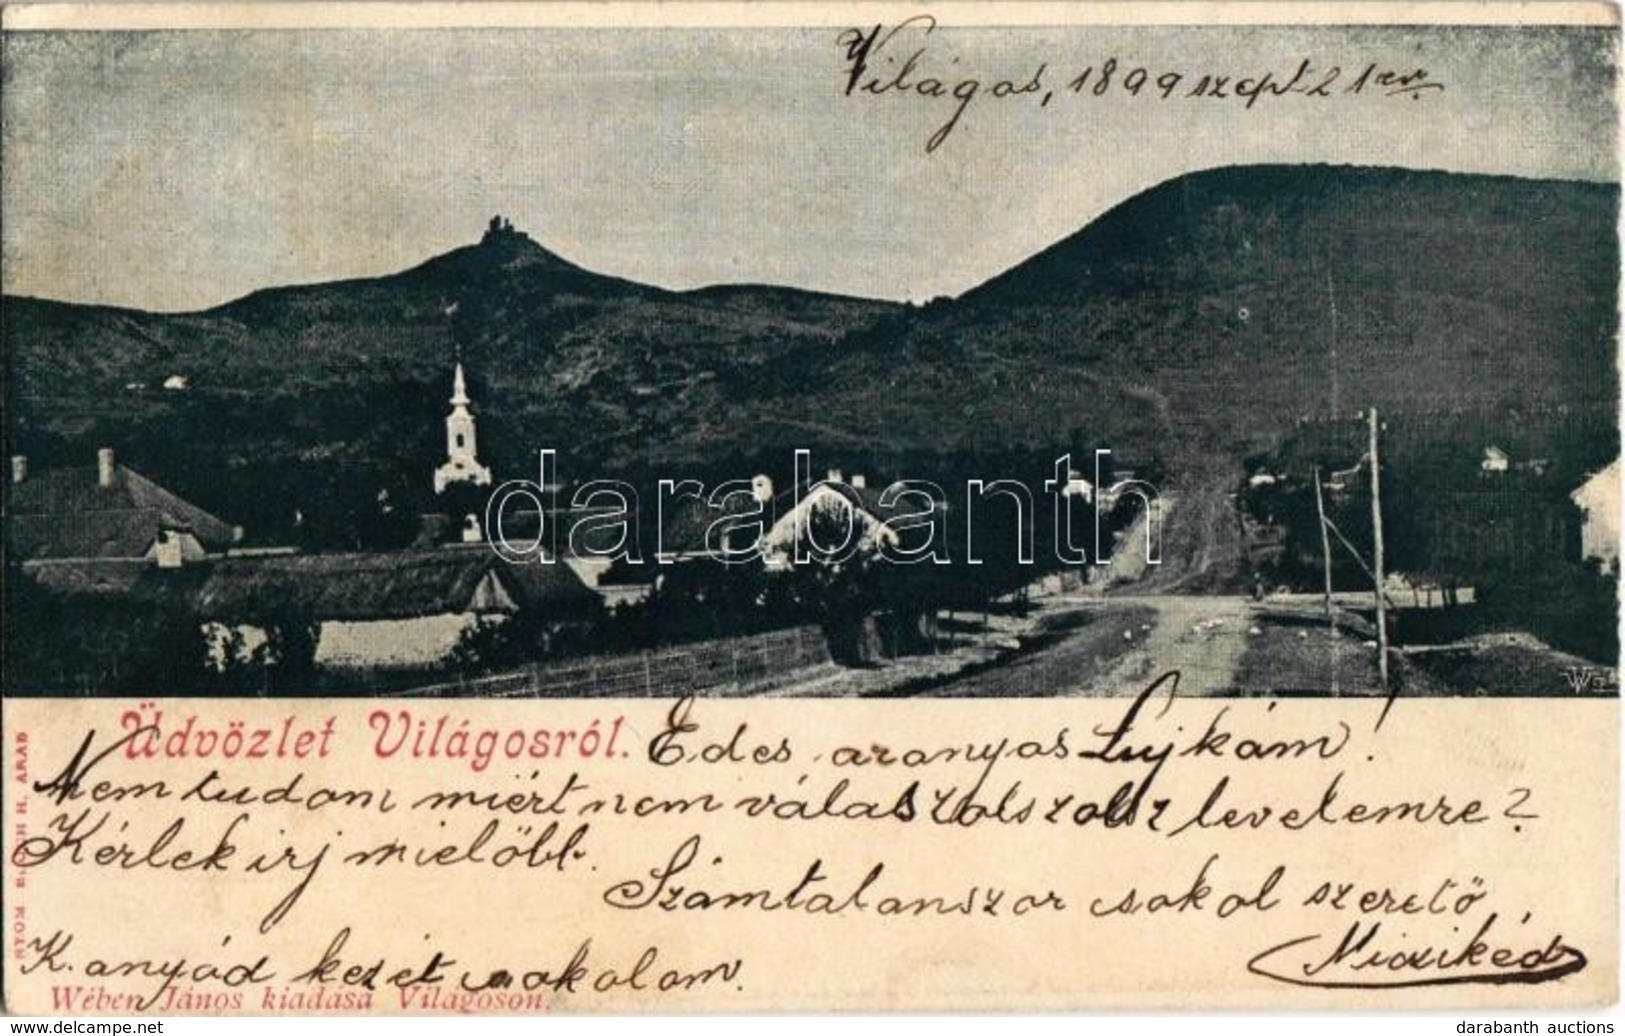 Világos, 1899 szept 21én
darabanth
Üdvözlet Világosról. Édes aranyos Lujkám!
Nem tudom miért nem válaszolsz levelemre?
Kérlek irj mielöbb.
Számtalanszor csokol szeretö
Miczikéd
K. anyád kezét csokolom.
Wében János kiadása Világoson.
NYOM. BLOCH H. ARAD
darabanth auctions